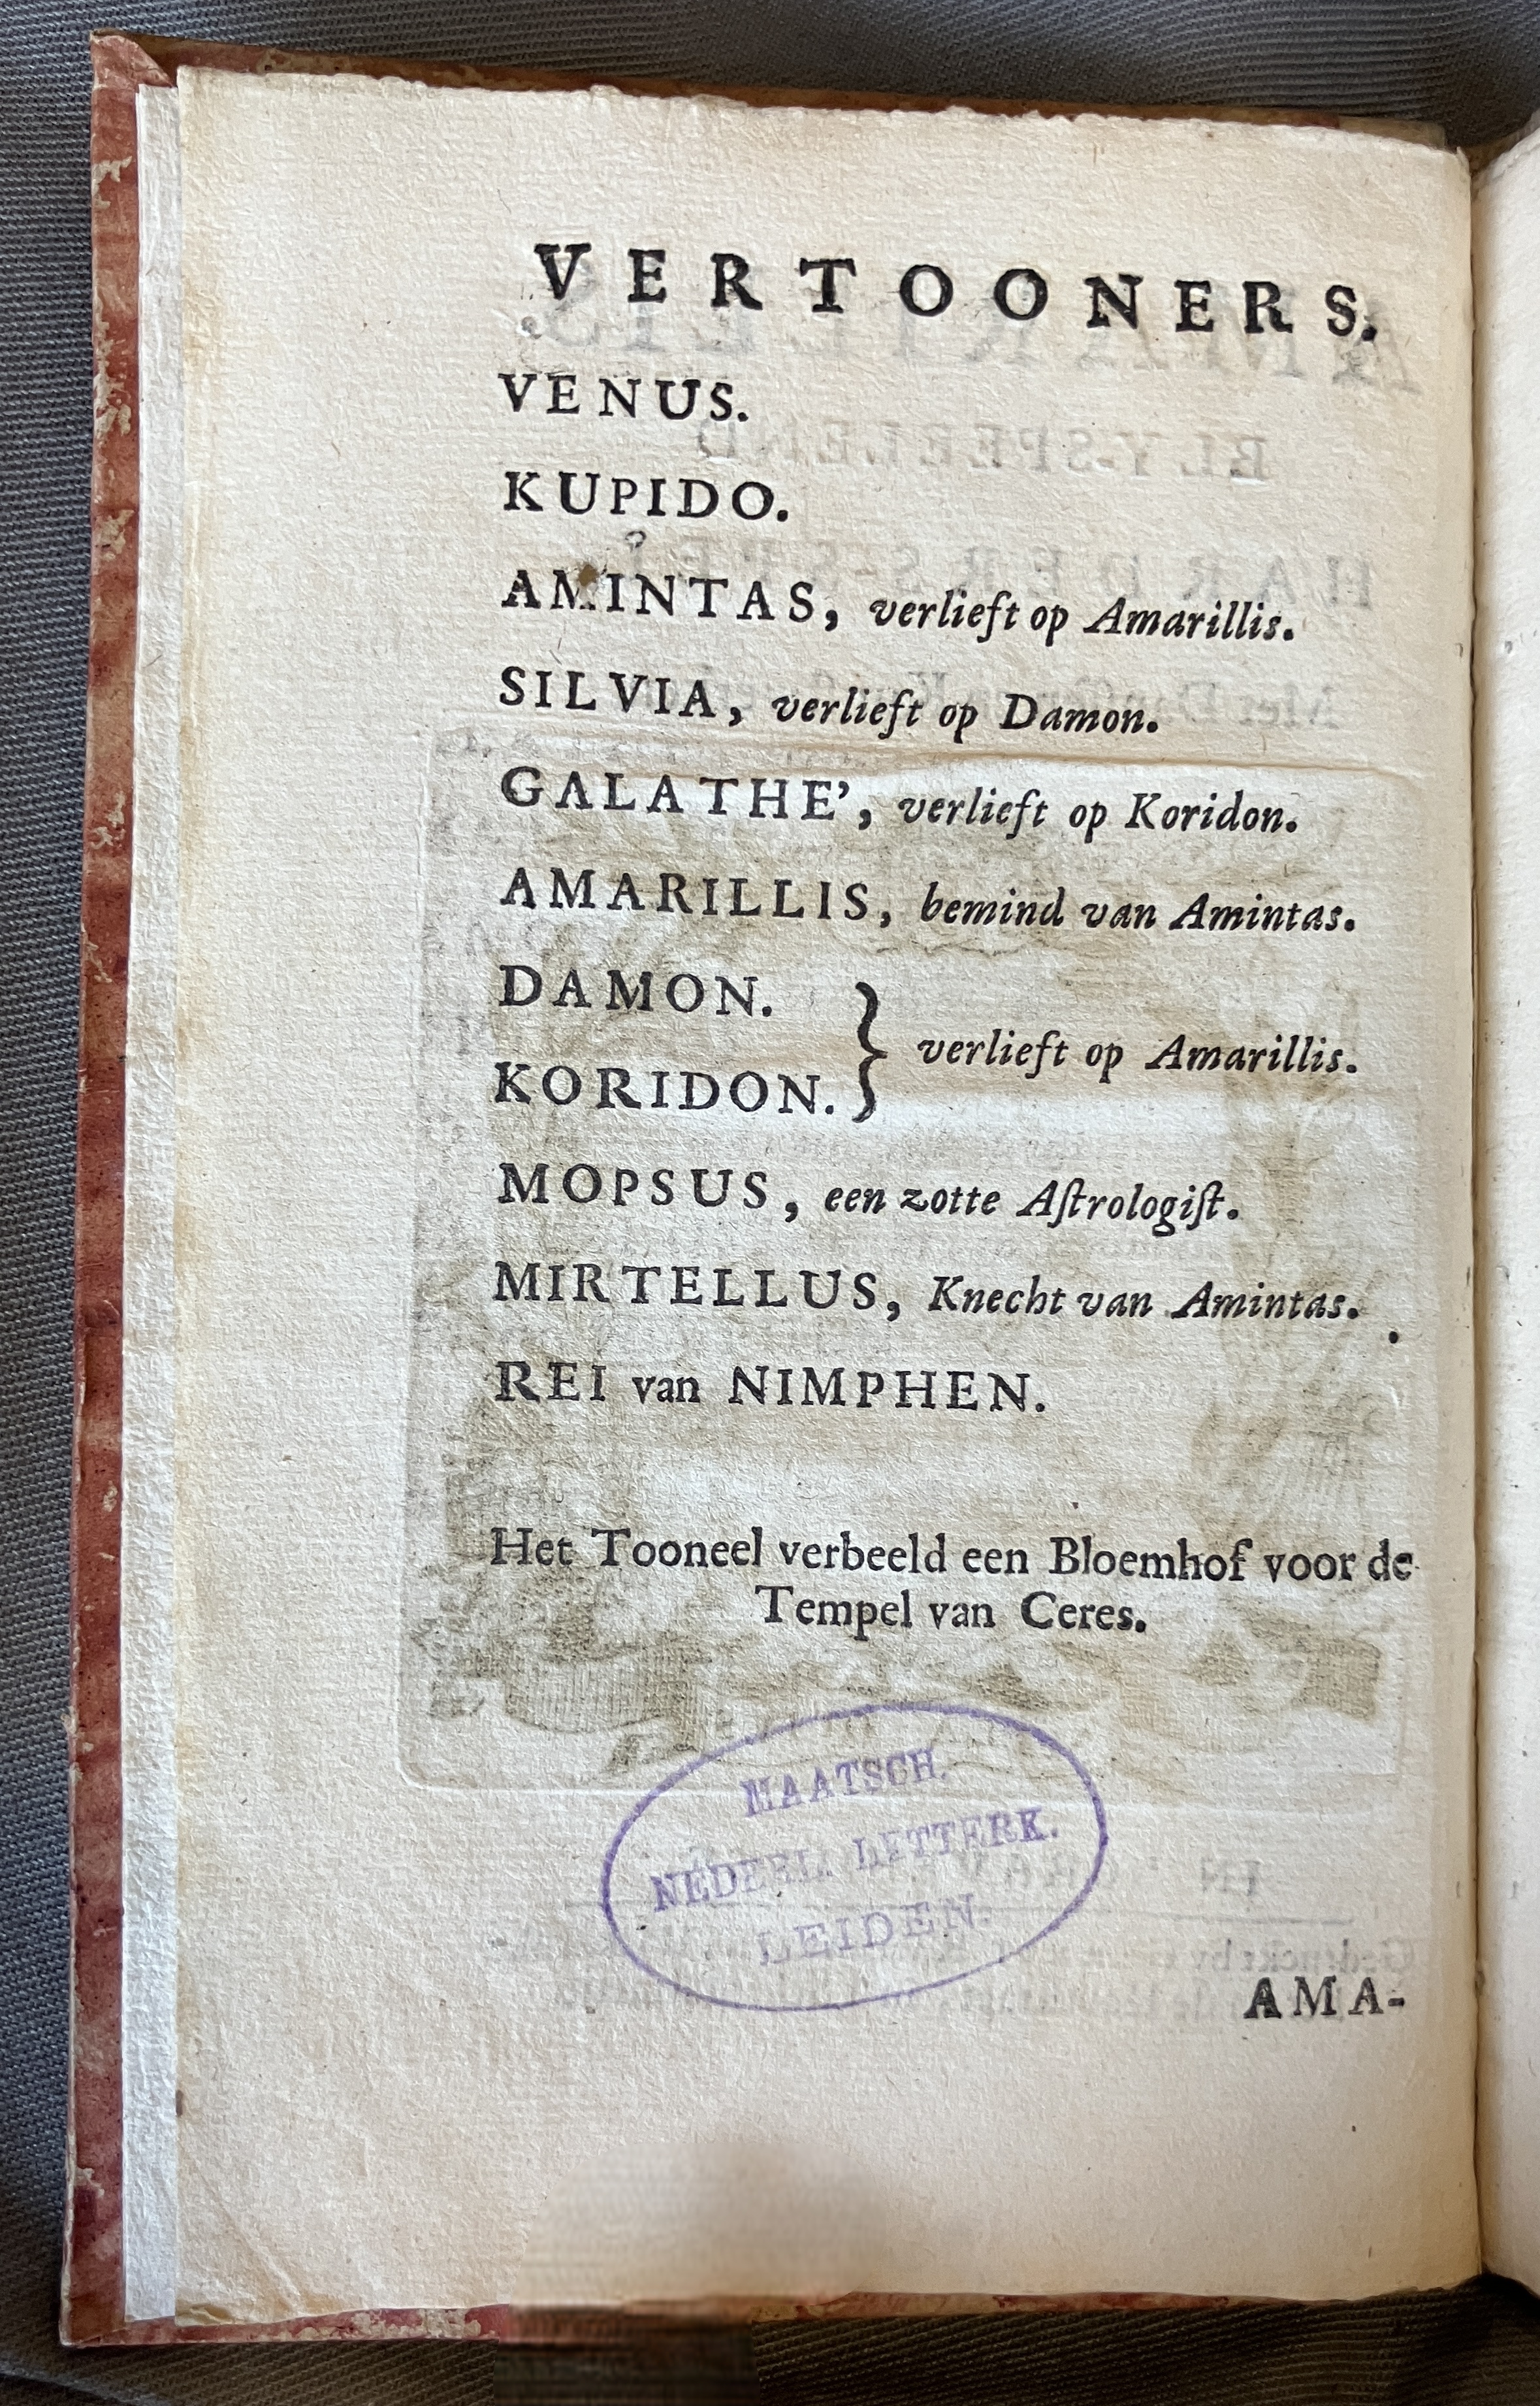 VERTOONERS.
VENUS.
KUPIDO.
AMINTAS, verlieft op Amarillis.
SILVIA, verlieft op Damon.
GALATHE', verlieft op Koridon.
AMARILLIS, bemind van Amintas.
DAMON.
KORIDON. } verlieft op Amarillis.
MOPSUS, een zotte Aſtrologiſt.
MIRTELLUS, Knecht van Amintas.
REI van NIMPHEN.
Het Tooneel verbeeld een Bloemhof voor de
Tempel van Ceres.
MAATSCH.
NEDERL. LETTERK.
LEIDEN.
AMA-